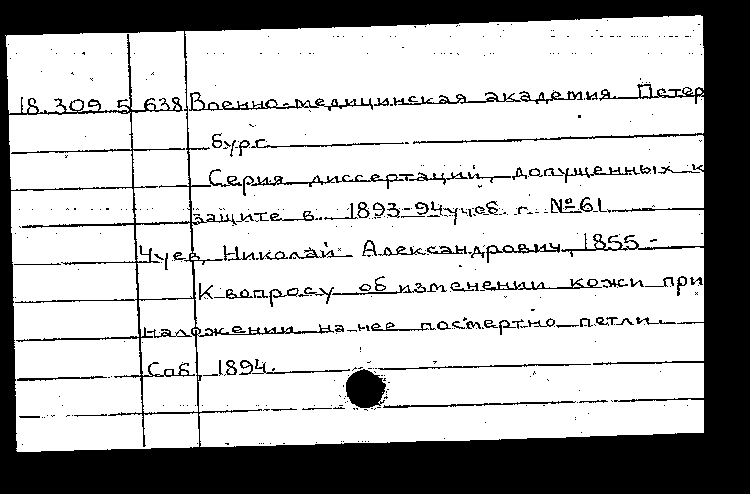 18.309.5 638 Военно-медицинская академия. Петер
бург.
Серия диссертаций, допущенных к
защите в 1893-94 учеб. г. № 61
Чуев, Николай Александрович, 1855-
К вопросу об изменении кожи при
наложении на нее посмертно петли.
Спб, 1894.